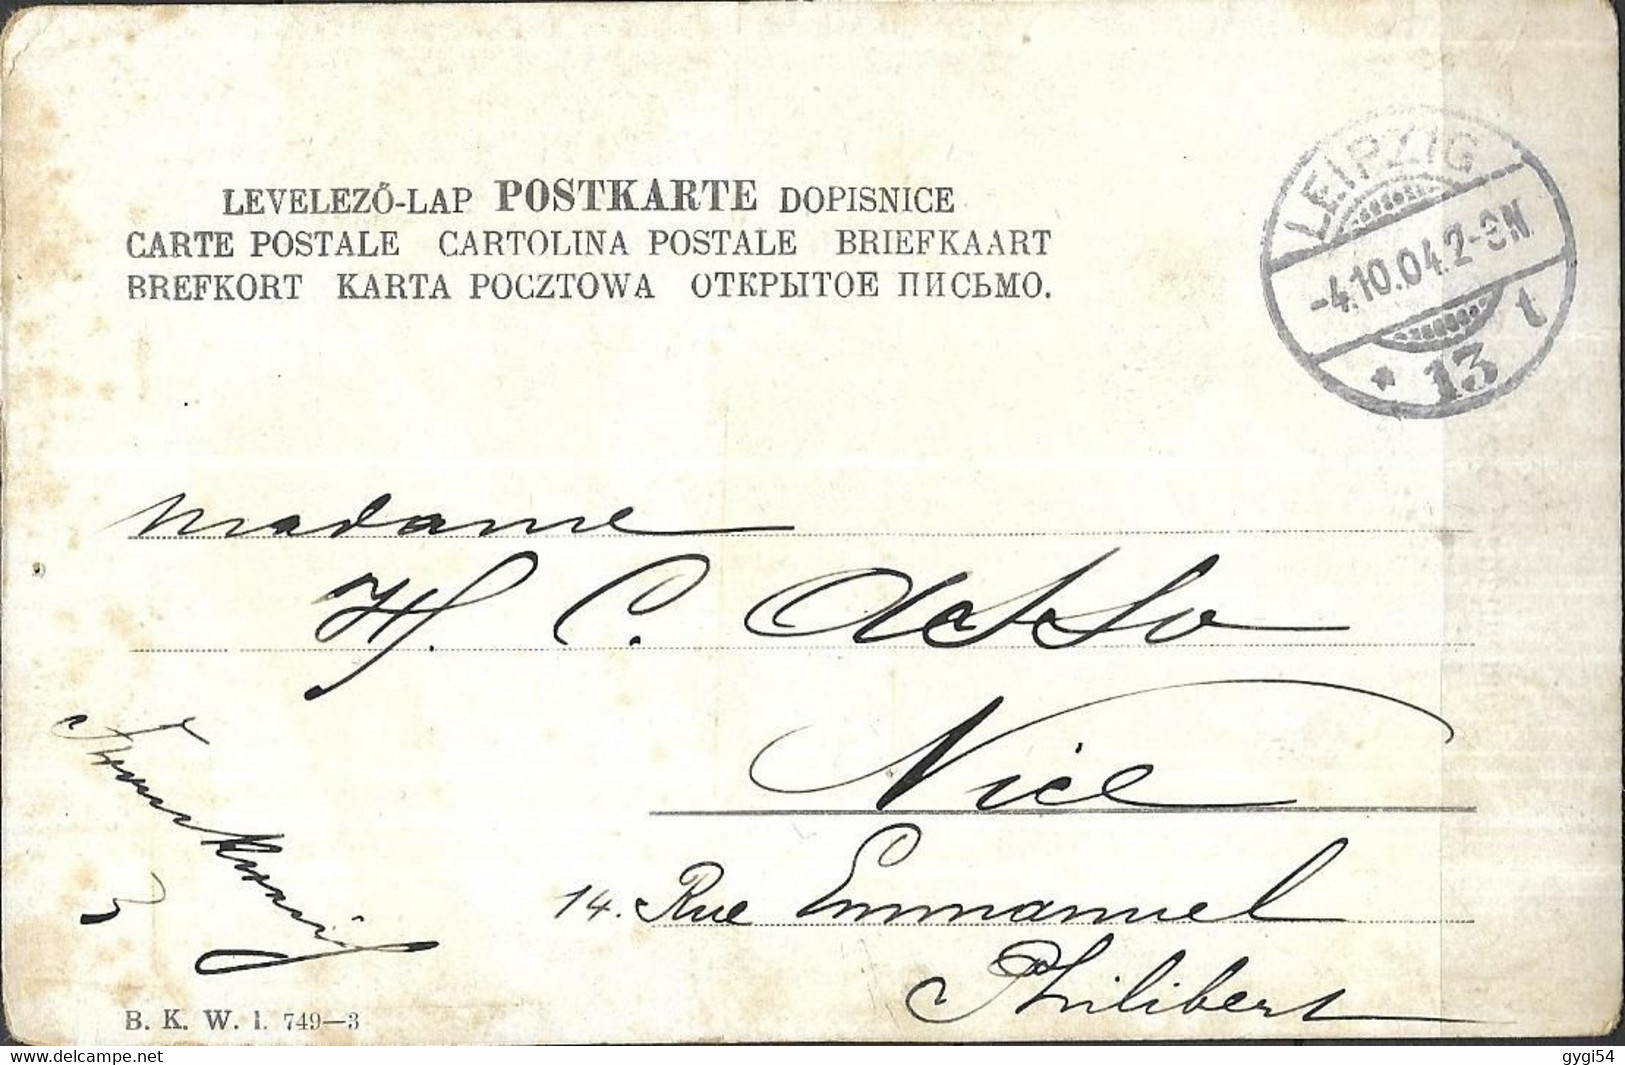 LEVELEZŐ-LAP POSTKARTE DOPISNICE
CARTE POSTALE CARTOLINA POSTALE BRIEFKAART
BREFKORT KARTA POCZTOWA ОТКРЫТОЕ ПИСЬМО.
LEIPZIG
-4.10.04.2-3N.
* 13 t
Madame
H. C. Asso
Nice
14. Rue Emmanuel
Philibert
3
B. K. W. I. 749—3
gygi54
www.delcampe.net